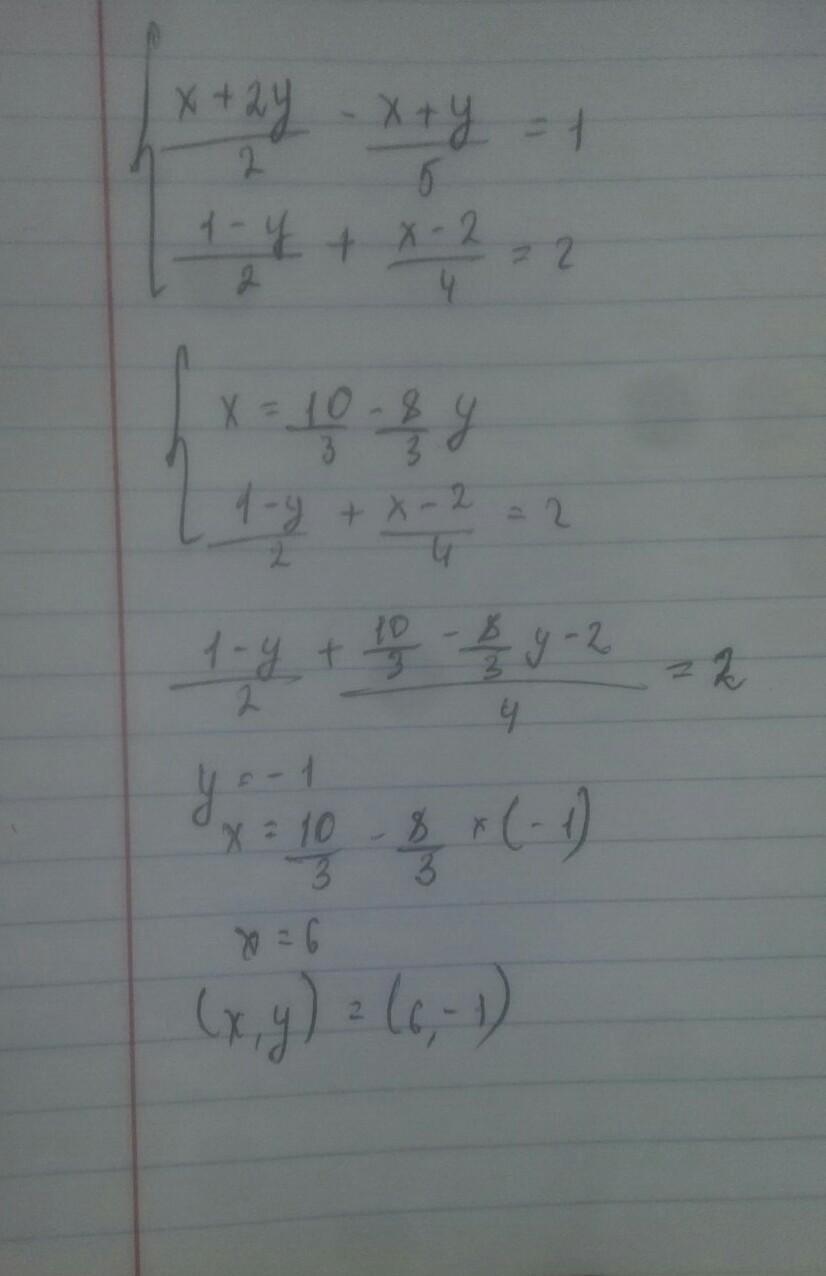 { (x+2y)/2 - (x+y)/5 = 1
(1-y)/2 + (x-2)/4 = 2
{ x = 10/3 - 8/3 y
(1-y)/2 + (x-2)/4 = 2
(1-y)/2 + (10/3 - 8/3 y - 2)/4 = 2
y = -1
x = 10/3 - 8/3 × (-1)
x = 6
(x,y) = (6,-1)